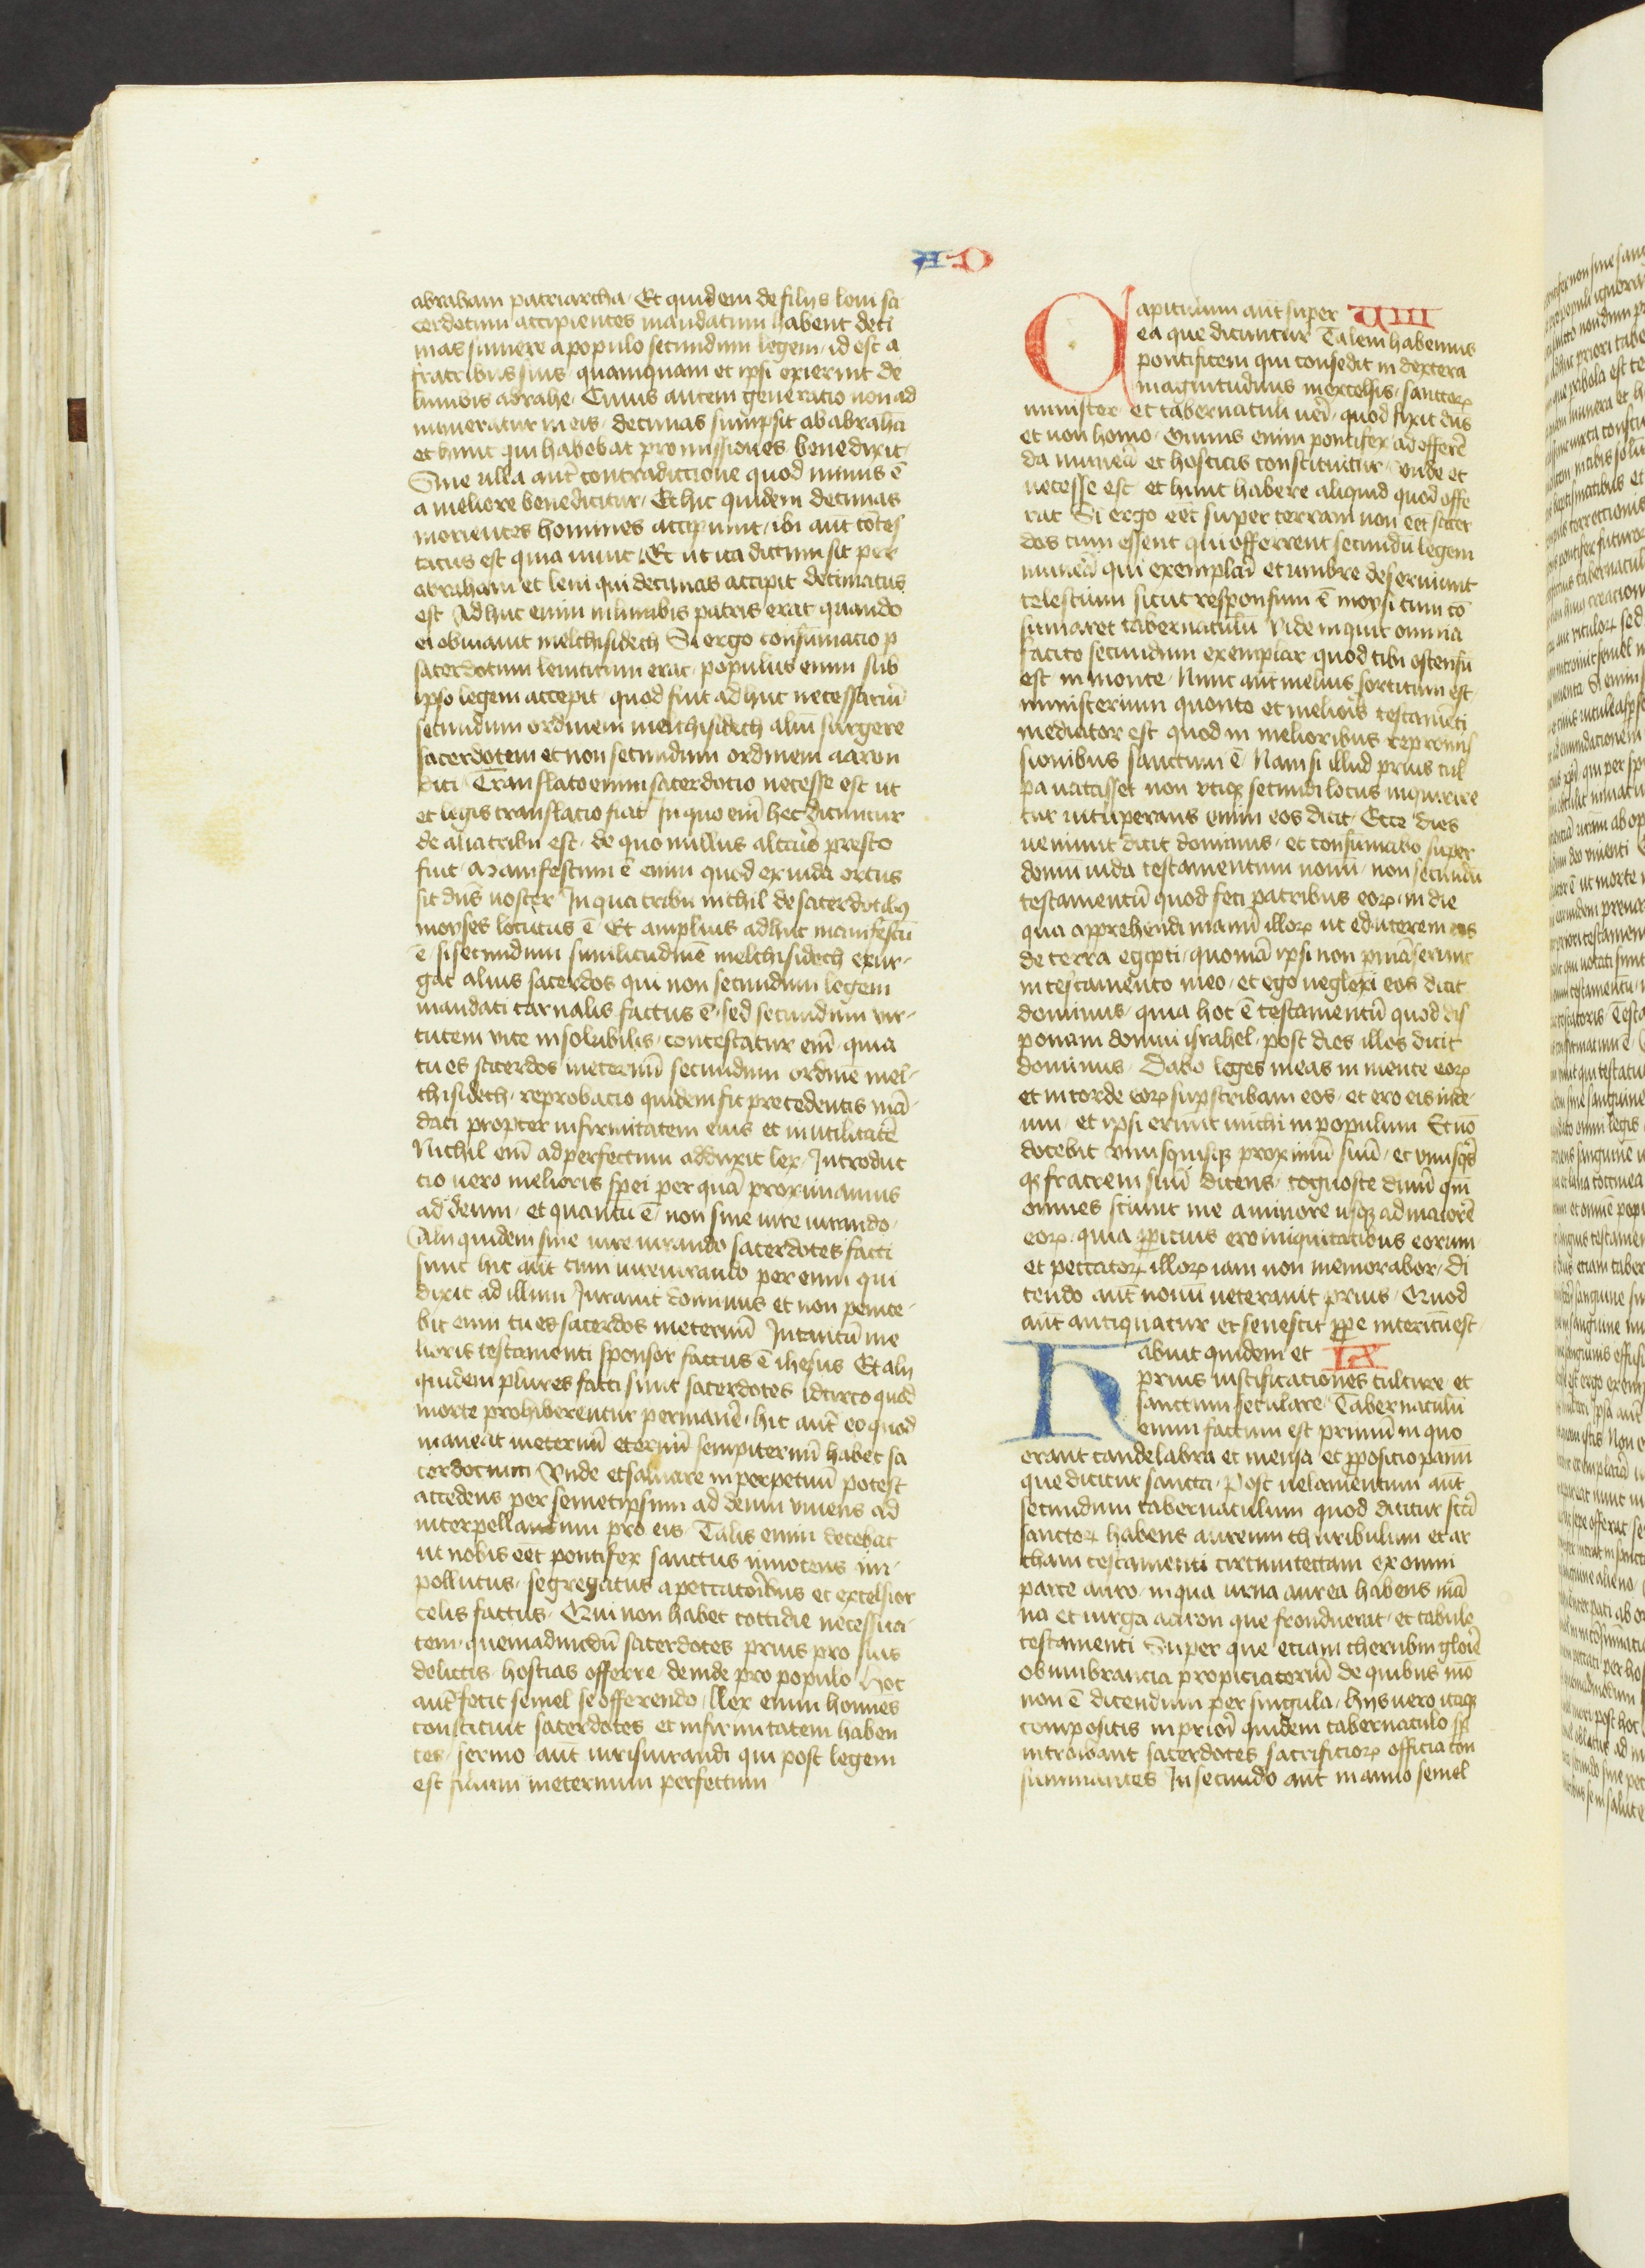 A D
abraham patriarcha. Et quidem de filijs leui sa
cerdotium accipientes mandatum habent deci
mas sumere a populo secundum legem, id est a
fratribus suis quamquam et ipsi exierint de
lumbis abrahe. Cuius autem generacio non ad
numeratur in eis, decimas sumpsit ab abrahā
et hunc qui habebat promissiones benedixit.
Sine ulla aūt contradictione quod minus ē
a meliore benedicitur. Et hic quidem decimas
morientes homines accipiunt, ibi aut cōtes
tatus est quia uiuit. Et ut ita dictum sit per
abraham et leui qui decimas accipit decimatus
est Adhuc enim in lumbis patris erat quando
ei obuiauit melchisidech Si ergo consūmacio p
sacerdotium leuiticum erat, populus enim sub
ipso legem accepit, quod fuit adhuc necessariū
secundum ordinem melchisidech aliū surgere
sacerdotem et non secundum ordinem aaron
dici Translato enim sacerdocio necesse est ut
et legis translacio fiat In quo eniɱ hec dicuntur
de alia tribu est, de quo nullus altario presto
fuit. Manifestum ē enim quod ex iuda ortus
sit dūs noster In qua tribu nichil de sacerdotibꝰ
moyses locutus ē Et amplius adhuc manifestū
ē, si secundum similitudinē melchisidech exur-
gat alius sacerdos qui non secundum legem
mandati carnalis factus ē, sed secundum vir-
tutem vite insolubilis, contestatur eiɱ, quia
tu es sacerdos ineternū secundum ordinē mel-
chisidech, reprobacio quidem fit precedentis mā-
dati propter infirmitatem eius et inutilitatē
Nichil eiɱ ad perfectum adduxit lex, Introduc
cio uero melioris spei per quā proximamus
ad deum, et quantū ē, non sine iure iurando,
Alij quidem sine iure iurando sacerdotes facti
sunt hic aūt cum iureiurando per eum qui
dixit ad illum Iurauit dominus et non penite-
bit eum tu es sacerdos ineternū Intantū me
lioris testamenti sponsor factus ē ihesus Et alij
quidem plures facti sunt sacerdotes idcirco quod
morte prohiberentur permanē, hic aūt eo quod
maneat ineternū eternū sempiternū habet sa
cerdocium Vnde et saluare in perpetuū potest
accedens per semetipsum ad deum viuens ad
interpellandum pro eis. Talis enim decebat
ut nobis eēt pontifex sanctus innocens im-
pollutus, segregatus a peccatoribus et excelsior
celis factus. Qui non habet cottidie necessita-
tem, quemadmodū sacerdotes prius pro suis
delictis hostias offerre, deinde pro populo Hoc
aūt fecit semel se offerendo, llex enim homines
constituit sacerdotes et infirmitatem haben
tes, sermo aūt iurisiurandi qui post legem
est filium ineternum perfectum
Capitulum aūt super VIII
ea que dicuntur Talem habemus
pontificem qui consedit in dextera
magnitudinis in excelsis, sanctoꝝ
minister et tabernaculi ueri, quod fixit dūs
et non homo. Omnis enim pontifex ad offerē
da munera et hostias constituitur, vnde et
necesse est et hunc habere aliquid quod offe
rat Si ergo eēt super terram non eēt sacer
dos cum essent qui offerrent secundū legem
munera qui exemplari et umbre deseruiunt
celestium sicut responsum ē moysi cum cō
sumaret tabernaculū Vide inquit omnia
facito secundum exemplar quod tibi ostensū
est in monte. Nunc aūt melius sortitum est
ministerium quanto et melioris testamēti
mediator est quod in melioribus repromis
sionibus sanctum ē Nam si illud prius cul
pa uacasset non vtiqꝫ secundi locus inquirere
tur uituperans enim eos dicit Ecce dies
ueniunt dicit dominus, et consūmabo super
domū iuda testamentum nouū, non secundū
testamentū quod feci patribus eoꝝ, in die
qua apprehendi manū illoꝝ ut educerem eos
de terra egypti, quoniā ipsi non pmāserunt
in testamento meo, et ego neglexi eos dicit
dominus, quia hoc ē testamentū quod dis
ponam domui israhel, post dies illos dicit
dominus. Dabo leges meas in mente eoꝝ
et in corde eoꝝ supscribam eos, et ero eis in de-
um, et ipsi erunt michi in populum Et nō
docebit vnusquisqꝫ proximū suū, et vnusqs
qꝫ fratrem suū dicens, cognosce dnm̄ qm̄
omnes scient me a minore usqꝫ ad maiorē
eoꝝ. quia ꝓpicius ero iniquitatibus eorum
et peccatoꝝ illoꝝ iam non memorabor, Di
cendo aūt nouū ueterauit prius, Quod
aūt antiquatur et senescit ꝓpe interitū est.
Habuit quidem et IX
prius iustificationes culture et
sanctum seculare, Tabernaculū
enim factum est primū in quo
erant candelabra et mensa et ꝓposicio panū
que dicitur sancta. Post uelamentum aūt
secundum tabernaculum quod dicitur scā
sanctoꝝ habens aureum thuribulum et ar
cham testamenti circumtectam ex omni
parte auro, in qua urna aurea habens mā
na et uirga aaron que fronduerat, et tabule
testamenti Super que etiam cherubin glorie
obumbrancia propiciatoriū de quibus mō
non ē dicendum per singula, hijs uero itaqꝫ
compositis in priori quidem tabernaculo sp̄
introibant sacerdotes sacrificioꝝ officia con
summantes In secundo aūt in anno semel